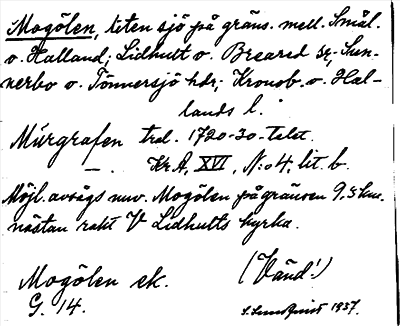 Mogölen, liten sjö på gräns. mell. Smål.
o. Halland; Lidhult o. Breared sr, Sun-
nerbo o. Tönnersjö hdr; Kronob. o. Hal-
lands l.
Mŭrgrafen trol. 1720-30-talet.
— . Kr. A, XVI, N:o 4, lit. b.
Möjl. avsågs nuv. Mogölen på gränsen 9,5 km.
nästan rakt V Lidhults kyrka.
Mogölen ek. (Vänd!)
G. 14. S. 1937.